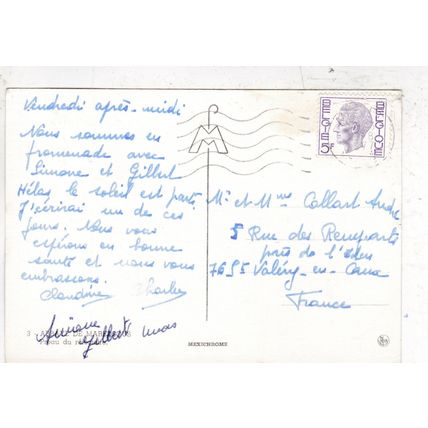 Vendredi après-midi
Nous sommes en
promenade avec
Simone et Gilbert
Hélas le soleil est parti
J'écrirai un de ces
jours. Nous vous
espérons en bonne
santé et nous vous
embrassons.
Claudine Charles
Simone
Gilbert
3 - DE MAR
du
MEXICHROME
BELGIE 5F BELGIQUE
Mr et Mme Collart André
5 Rue des Remparts
près de l'eden
76 Valéry-en-Caux
France